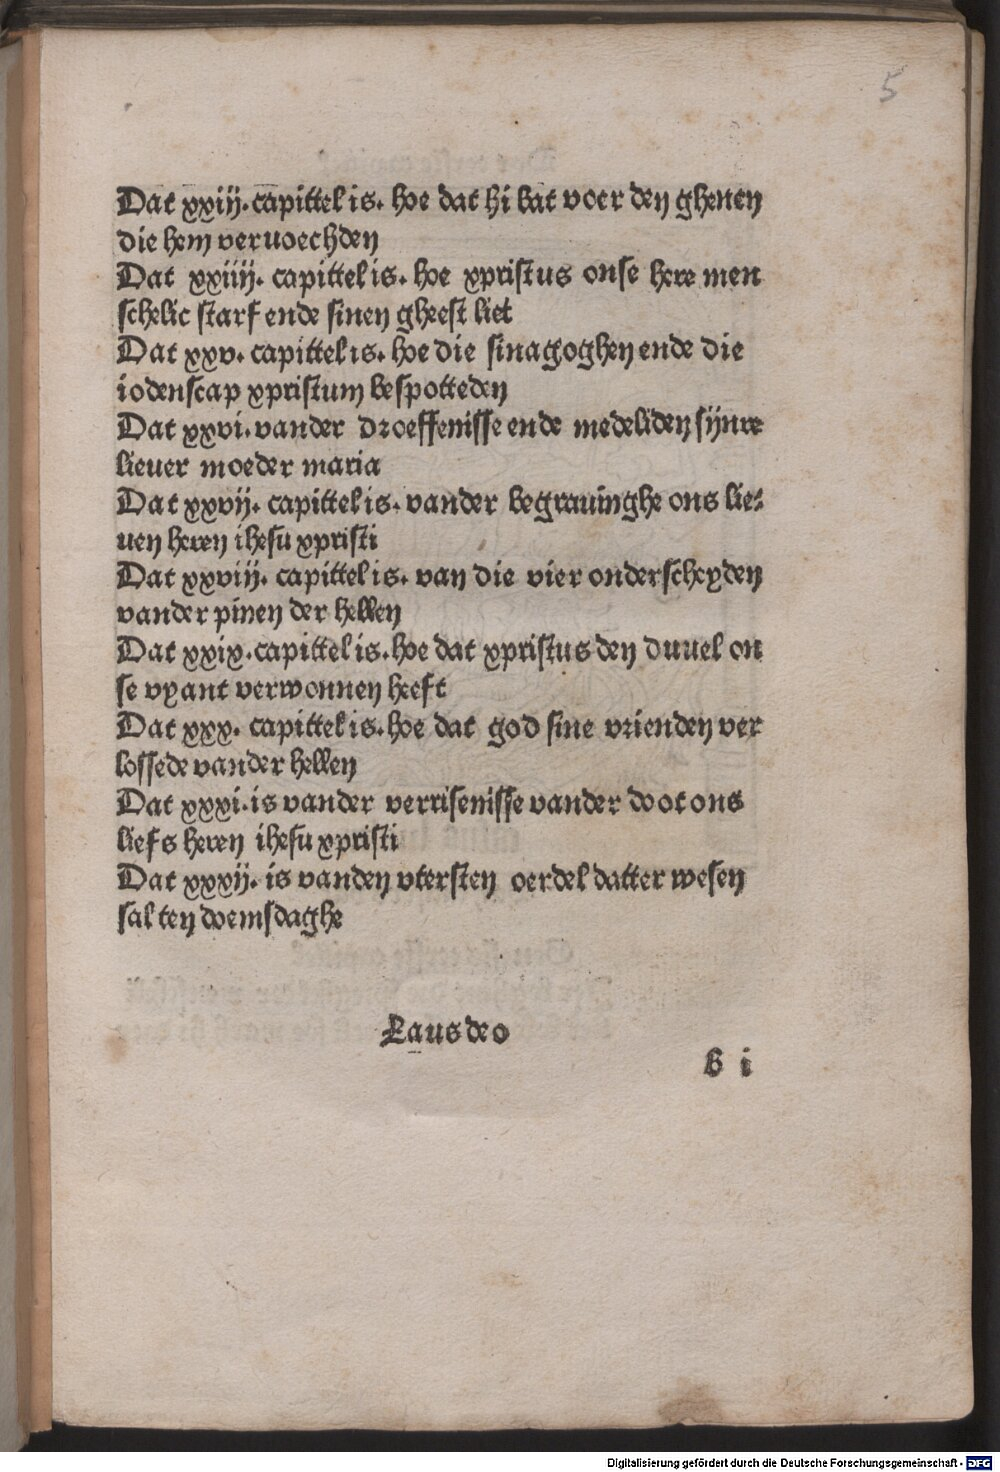 5
Dat xxiij. capittel is. hoe dat hi bat voer den ghenen
die hem veruoechden
Dat xxiiij. capittel is. hoe xpristus onse here men
schelic starf ende sinen gheest liet
Dat xxv. capittel is. hoe die sinagoghen ende die
iodenscap xpristum bespotteden
Dat xxvi. vander droeffenisse ende medeliden sijnre
lieuer moeder maria
Dat xxvij. capittel is. vander begrauinghe ons lie⸗
uen heren ihesu xpristi
Dat xxviij. capittel is. van die vier onderscheyden
vander pinen der hellen
Dat xxix. capittel is. hoe dat xpristus den duuel on
se vyant verwonnen heeft
Dat xxx. capittel is. hoe dat god sine vrienden ver
lossede vander hellen
Dat xxxi. is vander verrisenisse vander doot ons
liefs heren ihesu xpristi
Dat xxxij. is vanden vtersten oerdel datter wesen
sal ten doemsdaghe
Laus deo
b i
Digitalisierung gefördert durch die Deutsche Forschungsgemeinschaft - DFG